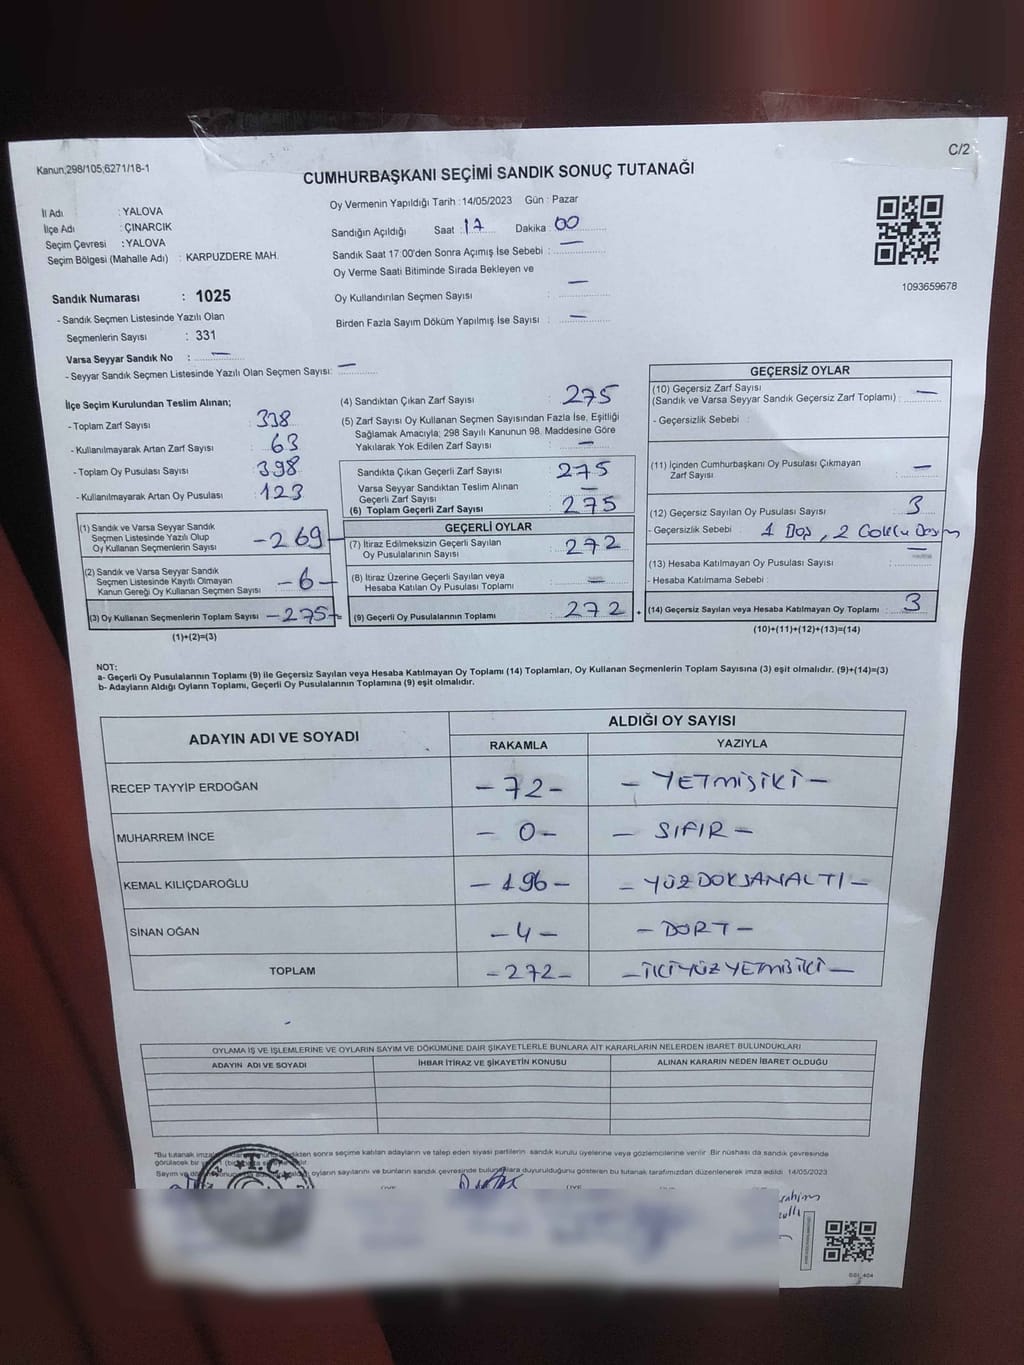 C/2
Kanun;298/105;6271/18-1
CUMHURBAŞKANI SEÇİMİ SANDIK SONUÇ TUTANAĞI
İl Adı : YALOVA
İlçe Adı : ÇINARCIK
Seçim Çevresi : YALOVA
Seçim Bölgesi (Mahalle Adı) : KARPUZDERE MAH.
Oy Vermenin Yapıldığı Tarih : 14/05/2023 Gün : Pazar
Sandığın Açıldığı Saat : 17 Dakika : 00
Sandık Saat 17:00'den Sonra Açımış İse Sebebi : —
Oy Verme Saati Bitiminde Sırada Bekleyen ve
Oy Kullandırılan Seçmen Sayısı : —
Birden Fazla Sayım Döküm Yapılmış İse Sayısı : —
1093659678
Sandık Numarası : 1025
- Sandık Seçmen Listesinde Yazılı Olan
Seçmenlerin Sayısı : 331
Varsa Seyyar Sandık No : —
- Seyyar Sandık Seçmen Listesinde Yazılı Olan Seçmen Sayısı: —
İlçe Seçim Kurulundan Teslim Alınan;
- Toplam Zarf Sayısı : 338
- Kullanılmayarak Artan Zarf Sayısı : 63
- Toplam Oy Pusulası Sayısı : 398
- Kullanılmayarak Artan Oy Pusulası : 123
(1) Sandık ve Varsa Seyyar Sandık
Seçmen Listesinde Yazılı Olup
Oy Kullanan Seçmenlerin Sayısı -269-
(2) Sandık ve Varsa Seyyar Sandık
Seçmen Listesinde Kayıtlı Olmayan
Kanun Gereği Oy Kullanan Seçmen Sayısı -6-
(3) Oy Kullanan Seçmenlerin Toplam Sayısı -275-
(1)+(2)=(3)
(4) Sandıktan Çıkan Zarf Sayısı : 275
(5) Zarf Sayısı Oy Kullanan Seçmen Sayısından Fazla İse, Eşitliği
Sağlamak Amacıyla; 298 Sayılı Kanunun 98. Maddesine Göre
Yakılarak Yok Edilen Zarf Sayısı : —
Sandıkta Çıkan Geçerli Zarf Sayısı : 275
Varsa Seyyar Sandıktan Teslim Alınan
Geçerli Zarf Sayısı : —
(6) Toplam Geçerli Zarf Sayısı : 275
GEÇERLİ OYLAR
(7) İtiraz Edilmeksizin Geçerli Sayılan
Oy Pusulalarının Sayısı : 272
(8) İtiraz Üzerine Geçerli Sayılan veya
Hesaba Katılan Oy Pusulası Toplamı : —
(9) Geçerli Oy Pusulalarının Toplamı : 272
GEÇERSİZ OYLAR
(10) Geçersiz Zarf Sayısı
(Sandık ve Varsa Seyyar Sandık Geçersiz Zarf Toplamı) : —
- Geçersizlik Sebebi :
(11) İçinden Cumhurbaşkanı Oy Pusulası Çıkmayan
Zarf Sayısı : —
(12) Geçersiz Sayılan Oy Pusulası Sayısı : 3
- Geçersizlik Sebebi : 1 Boş, 2
(13) Hesaba Katılmayan Oy Pusulası Sayısı : —
- Hesaba Katılmama Sebebi :
(14) Geçersiz Sayılan veya Hesaba Katılmayan Oy Toplamı : 3
(10)+(11)+(12)+(13)=(14)
NOT:
a- Geçerli Oy Pusulalarının Toplamı (9) ile Geçersiz Sayılan veya Hesaba Katılmayan Oy Toplamı (14) Toplamları, Oy Kullanan Seçmenlerin Toplam Sayısına (3) eşit olmalıdır. (9)+(14)=(3)
b- Adayların Aldığı Oyların Toplamı, Geçerli Oy Pusulalarının Toplamına (9) eşit olmalıdır.
ADAYIN ADI VE SOYADI
ALDIĞI OY SAYISI
RAKAMLA YAZIYLA
RECEP TAYYİP ERDOĞAN -72- -YETMİŞİKİ-
MUHARREM İNCE -0- -SIFIR-
KEMAL KILIÇDAROĞLU -196- -YÜZDOKSANALTI-
SİNAN OĞAN -4- -DÖRT-
TOPLAM -272- -İKİYÜZYETMİŞİKİ-
OYLAMA İŞ VE İŞLEMLERİNE VE OYLARIN SAYIM VE DÖKÜMÜNE DAİR ŞİKAYETLERLE BUNLARA AİT KARARLARIN NELERDEN İBARET BULUNDUKLARI
ADAYIN ADI VE SOYADI İHBAR İTİRAZ VE ŞİKAYETİN KONUSU ALINAN KARARIN NEDEN İBARET OLDUĞU
*Bu tutanak sonra seçime katılan adayların ve talep eden siyasi partilerin sandık kurulu üyelerine veya gözlemcilerine verilir. Bir nüshası da sandık çevresinde
görülecek bir
Sayım ve oyların sayılarını ve bunların sandık çevresinde duyurulduğunu gösteren bu tutanak tarafımızdan düzenlenerek imza edildi. 14/05/2023
T.C.
ÜYE ÜYE